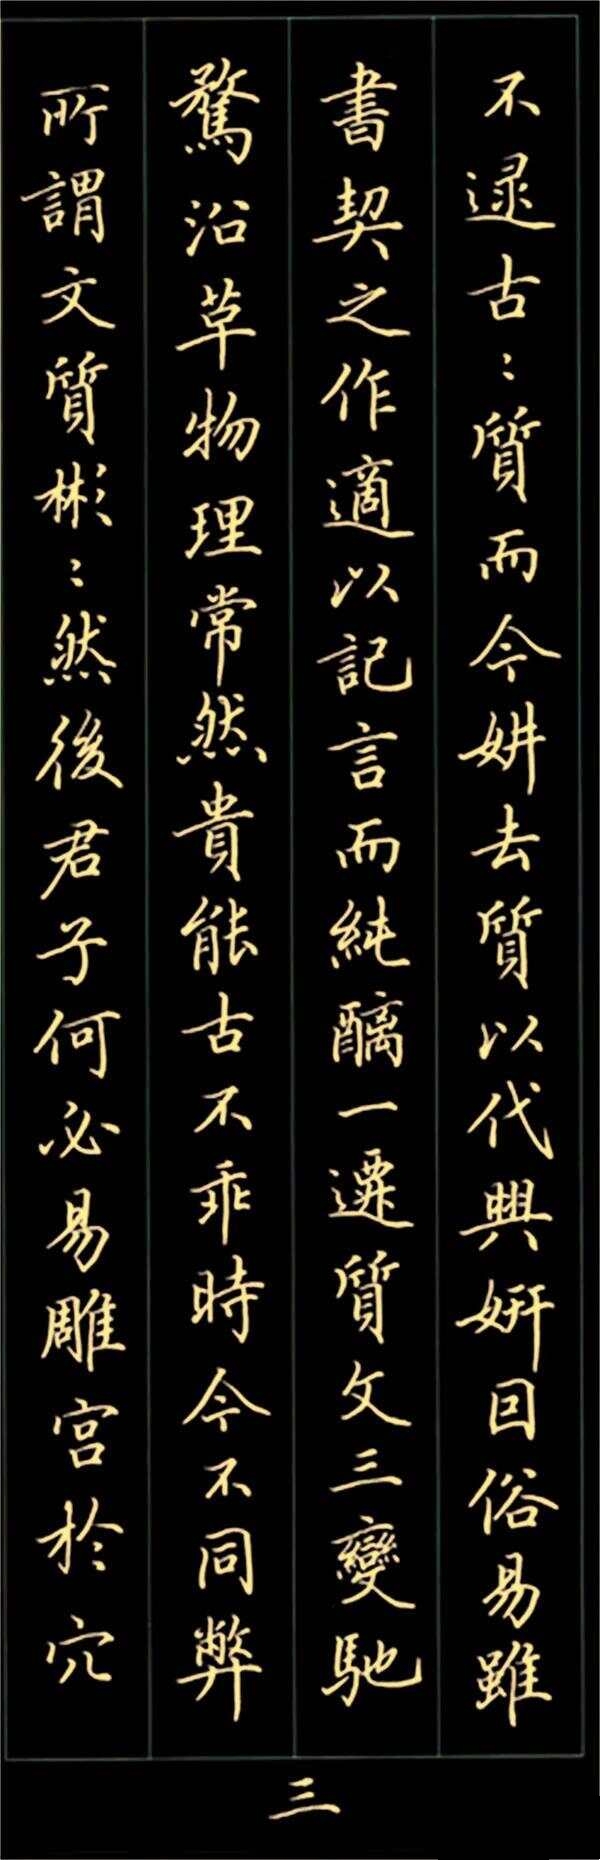 不逮古〻質而今妍去質以代興妍因俗易雖
書契之作適以記言而純醨一遷質文三變馳
騖沿革物理常然貴能古不乖時今不同弊
所謂文質彬〻然後君子何必易雕宮於穴
三